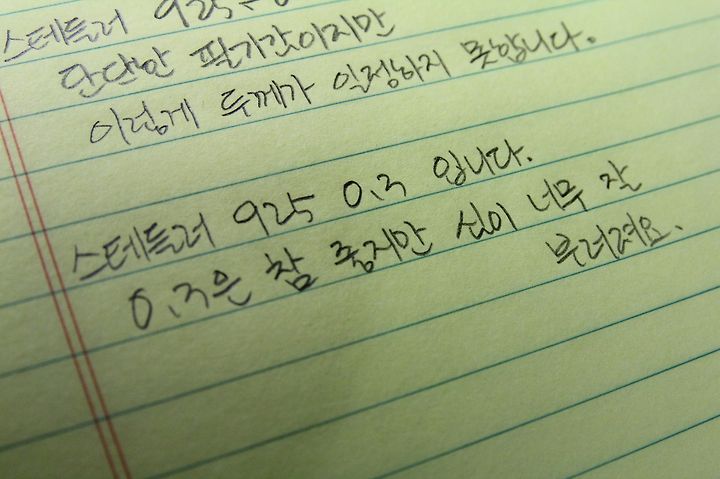 스테들러 925-
단단한 필기감이지만
이렇게 두께가 일정하지 못합니다.
스테들러 925 0.3 입니다.
0.3은 참 좋지만 심이 너무 잘
부러져요.